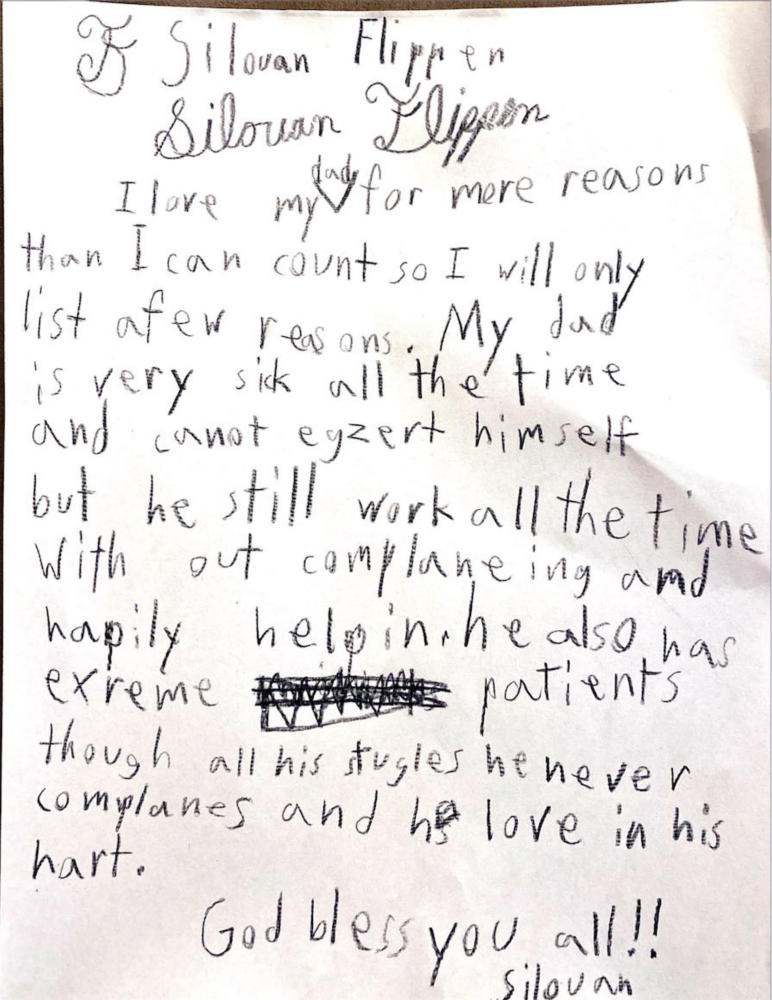 F Silouan Flippen
Silouan Flippen
dad
I love my for more reasons
than I can count so I will only
list afew reasons. My dad
is very sick all the time
and canot egzert himself
but he still work all the time
with out complaneing and
hapily helpin. he also has
exreme patients
though all his stugles he never
complanes and hs love in his
hart.
God bless you all!!
silouan